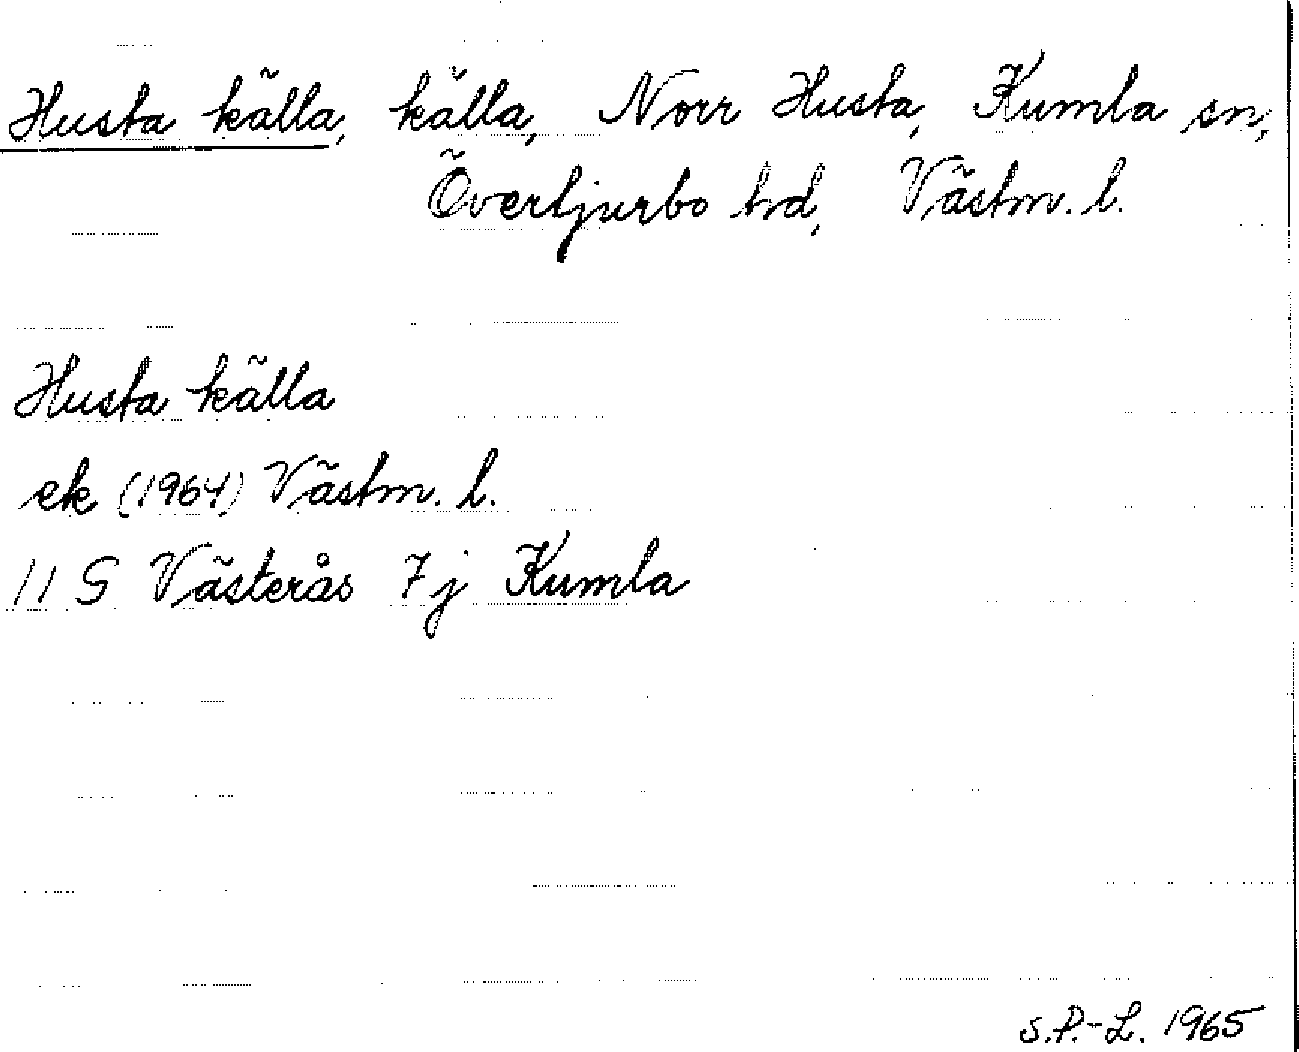 Husta källa, källa, Norr Husta, Kumla sn,
Övertjurbo hd, Västm. l.
Husta källa
ek (1964) Västm. l.
11 G Västerås 7j Kumla
S.P.-L. 1965